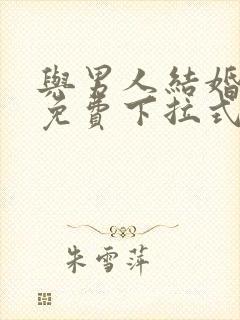 與男人結婚
免費下拉式
朱雪萍